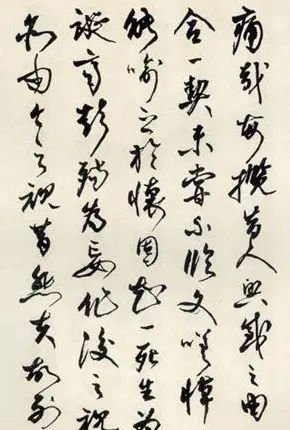 痛哉每攬昔人興感之由
合一契未嘗不臨文嗟悼
能喻之於懷固知一死生為
誕齊彭殤為妄作後之視
亦由今之視昔悲夫故列